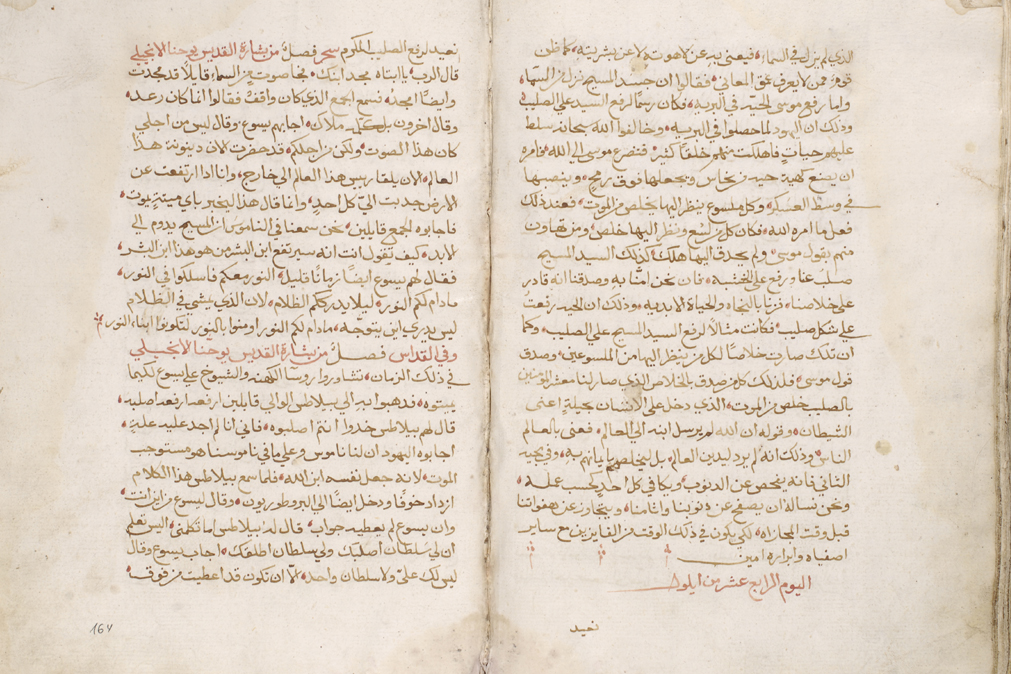 الذي لم يزل في السماء فيعني به عن لاهوته لا عن بشريته كما ظن
قوم ممن لا يعرف عمق المعاني فقالوا ان جسد المسيح نزل من السماء
واما رفع موسى الحيه في البريه فكان رسمًا لرفع السيد على الصليب
وذلك ان اليهود لما حصلوا في البريه وخالفوا الله سبحانه سلط
عليهم حيات فاهلكت منهم خلقًا كثير فتضرع موسى الى الله فامره
ان يصنع كهية حيه من نحاس ويجعلها فوق رمح وينصبها
في وسط العسكر وكل ملسوع ينظر اليها يخلص من الموت فعند ذلك
فعل ما امره الله فكان كل من لسع ونظر اليها خلص ومن تهاون
منهم بقول موسى ولم يحدق اليها هلك كذلك السيد المسيح
صلب عنا ورفع على الخشبه فان نحن امنّا به وصدقنا انه قادر
على خلاصنا فزنا بالنجاه والحياه الابديه وذلك ان الحيه رفعت
على شكل صليب فكانت مثالًا لرفع السيد المسيح على الصليب وكما
ان تلك صارت خلاصًا لكل من ينظر اليها من الملسوعين وصدق
قول موسى فلذلك كل من صدق بالخلاص الذي صار لنا معشر المومنين
بالصليب خلص من الموت الذي دخل على الانسان بحيلة اعني
الشيطان وقوله ان الله لم يرسل ابنه الى العالم فعنى بالعالم
الناس وذلك انه لم يرد ليدين العالم بل ليخلصهم بايمانهم به وفي مجيه
الثاني فانه يفحص عن الذنوب ويكافي كل احد بحسب عمله
ونحن نساله ان يصفح عن ذنوبنا واثامنا ويتجاوز عن هفواتنا
قبل وقت المجازاه لكي نكون في ذلك الوقت من الفايزين مع ساير
اصفياه وابراره امين
اليوم الرابع عشر من ايلول
نعيد
نعيد لرفع الصليب المكرم سحر فصل من بشارة القديس يوحنا الانجيلي
قال الرب يا ابتاه مجد ابنك فجا صوت من السماء قايلًا قد مجدت
وايضًا امجد فسمع الجمع الذي كان واقف فقالوا انما كان رعد
وقال اخرون بل كلمه ملاك اجابهم يسوع وقال ليس من اجلي
كان هذا الصوت ولكن من اجلكم قد حضرت الان دينونة هذا
العالم الان يلقا رييس هذا العالم الى خارج وانا اذا ارتفعت عن
الارض جذبت اليّ كل احد وانما قال هذا ليخبر باي ميتة يموت
فاجابوه الجمع قايلين نحن سمعنا في الناموس ان المسيح يدوم الى
الابد كيف تقول انت انه سيرتفع ابن البشر من هو هذا ابن البشر
فقال لهم يسوع ايضًا زمانًا قليل النور معكم فاسلكوا في النور
ما دام لكم النور ليلا يدرككم الظلام لان الذي يمشي في الظلام
ليس يدري اين يتوجه ما دام لكم النور اومنوا بالنور لتكونوا ابناء النور
وفي القداس فصل من بشارة القديس يوحنا الانجيلي
في ذلك الزمان تشاوروا روسا الكهنه والشيوخ على يسوع لكيما
يميتوه فذهبوا به الى بيلاطس الوالي قايلين ارفعه ارفعه اصلبه
قال لهم بيلاطس خذوا انتم اصلبوه فاني انا لم اجد عليه علة
اجابوه اليهود ان لنا ناموس وعلى ما في ناموسنا هو مستوجب
الموت لانه جعل نفسه ابن الله فلما سمع بيلاطس هذا الكلام
ازداد خوفًا ودخل ايضًا الى البروطوريون وقال ليسوع من اين انت
وان يسوع لم يعطيه جواب قال له بيلاطس اما تكلمني اليس تعلم
ان لي سلطان اصلبك ولي سلطان اطلقك اجاب يسوع وقال
ليس لك عليّ ولا سلطان واحد الّا ان تكون قد اعطيت من فوق
167